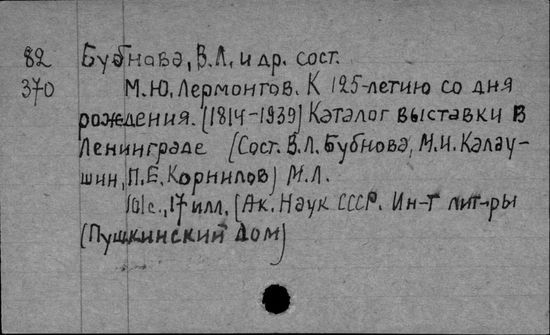 82 Бубнова, В.Л. и др. сост.
370 М.Ю. Лермонтов. К 125-летию со дня
рождения. (1814-1939) Каталог выставки в
Ленинграде (Сост. В.Л. Бубнова, М.И. Калау-
шин, П.Е. Корнилов) М.Л.
101с., 17 илл. (Ак. Наук СССР. Ин-т лит-ры
(Пушкинский Дом)